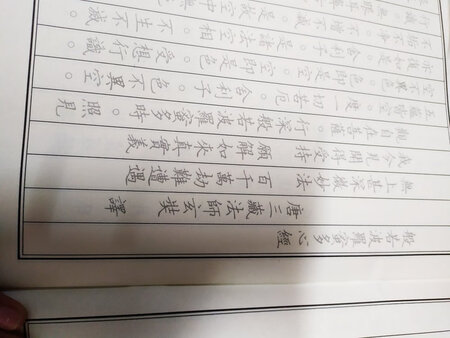 般若波羅蜜多心經
唐三藏法師玄奘 譯
無上甚深微妙法 百千萬劫難遭遇
我今見聞得受持 願解如來真實義
觀自在菩薩。行深般若波羅蜜多時。照見
五蘊皆空。度一切苦厄。舍利子。色不異空。
空不異色。色即是空。空即是色。受想行識。
亦復如是。舍利子。是諸法空相。不生不滅
不垢不淨。不增不減。是故